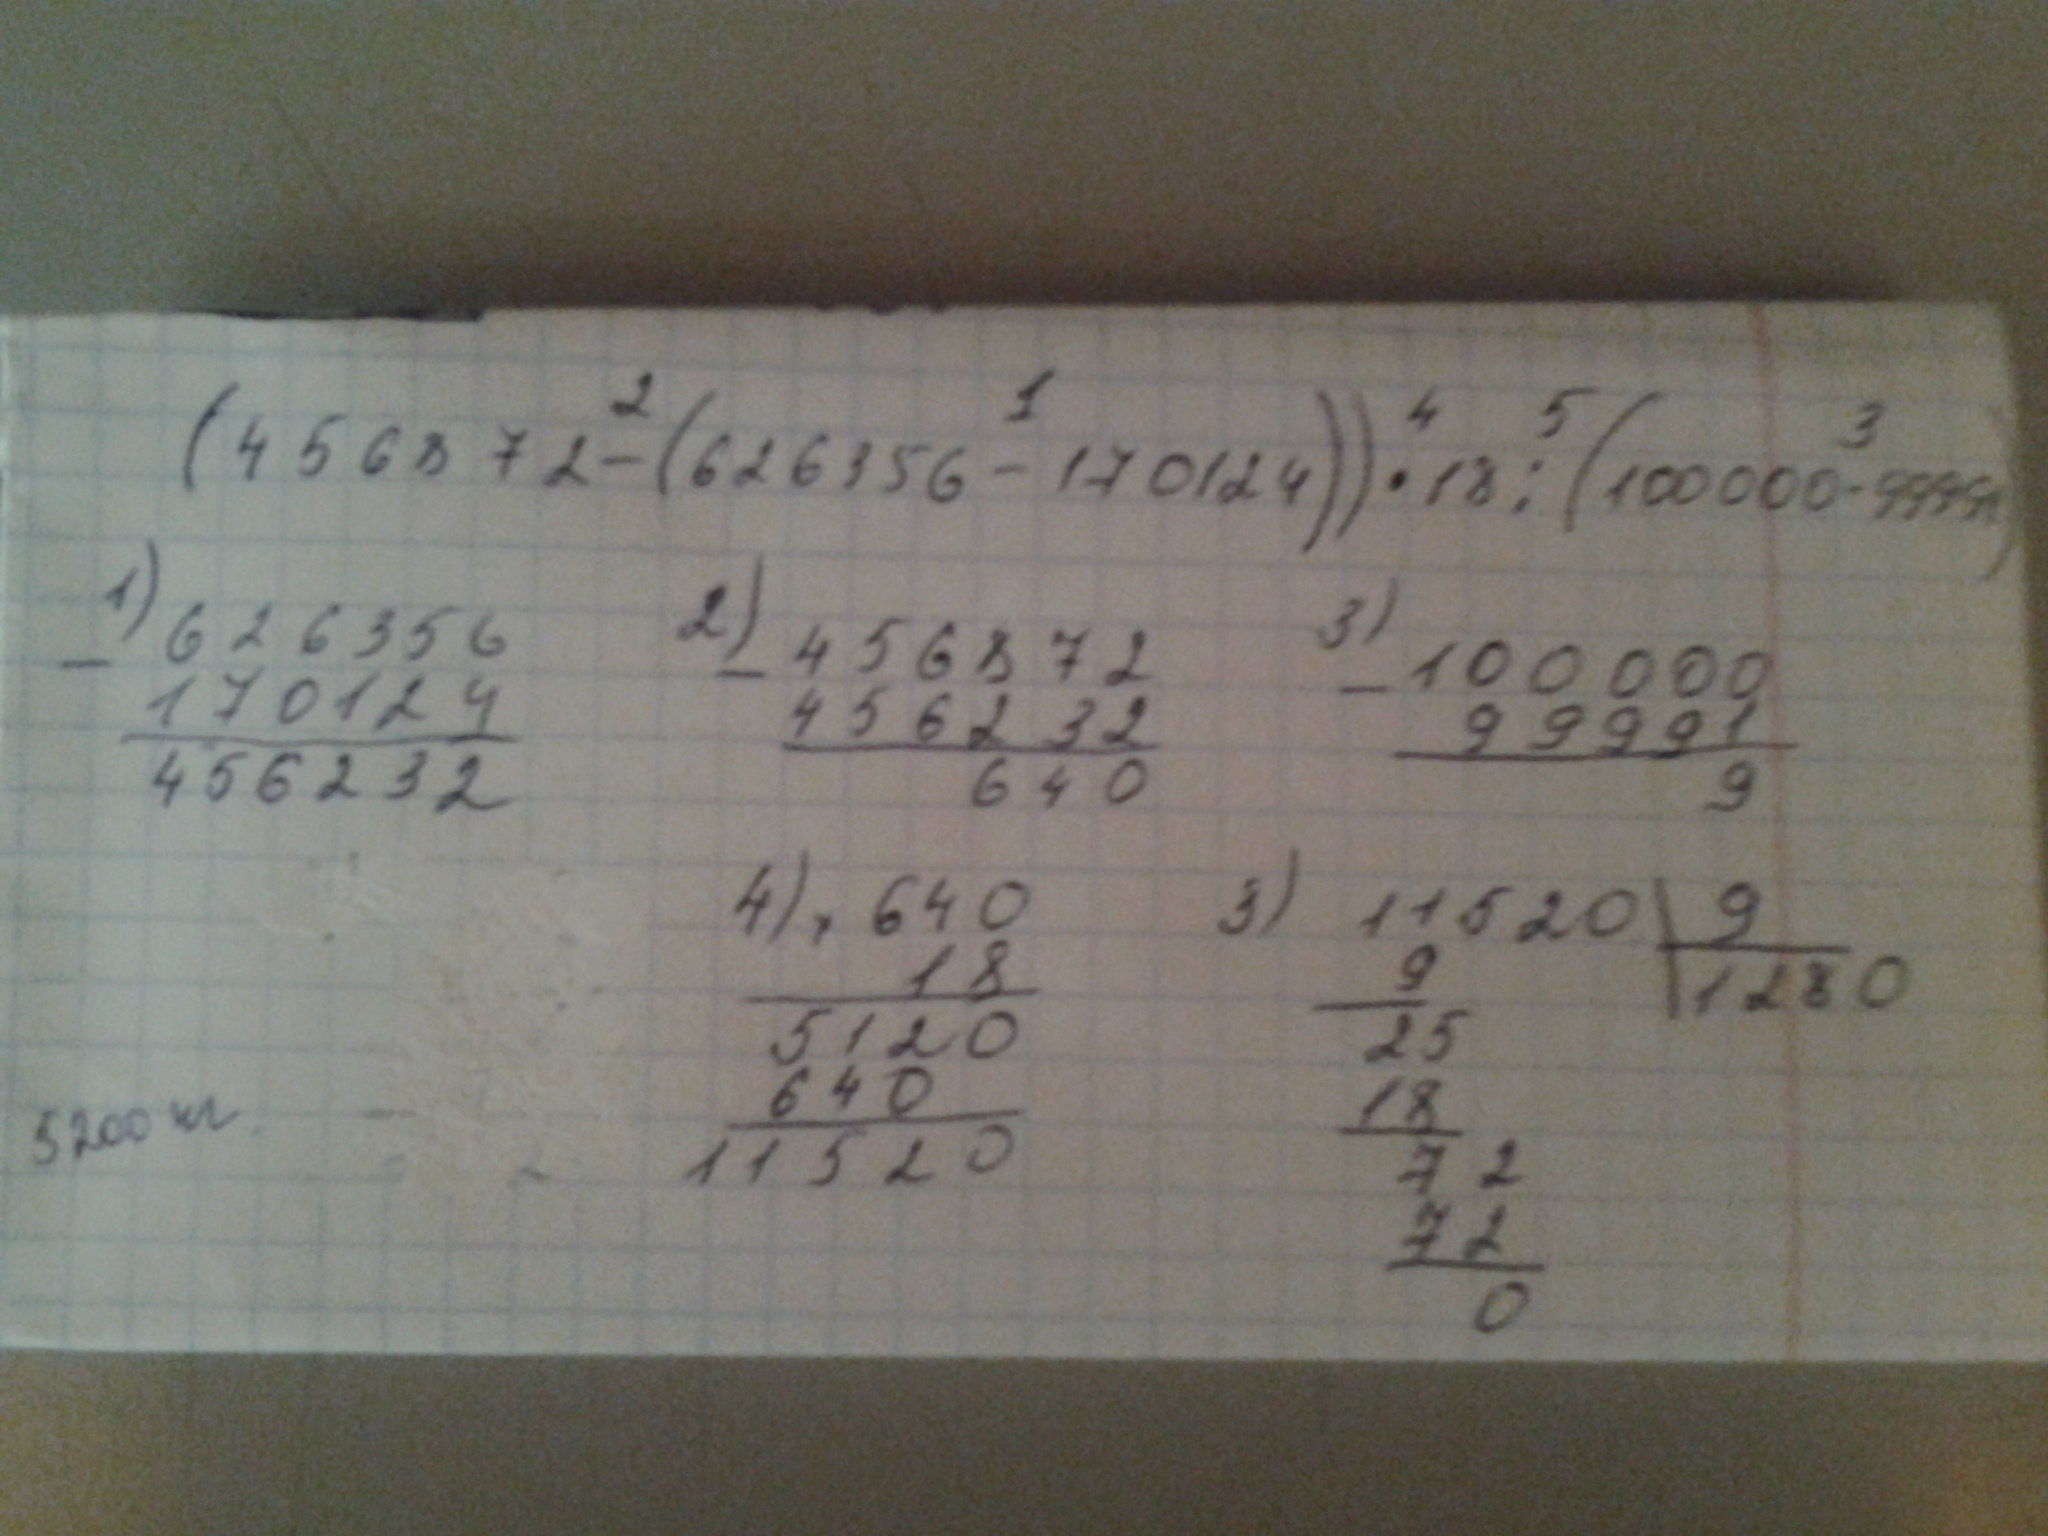 (456872-(626356-170124))·18:(100000-99991)
2 1 4 5 3
1) 626356
- 170124
456232
2) 456872
- 456232
640
3) 100000
- 99991
9
4) × 640
18
5120
640
11520
5) 11520 | 9
9 1280
25
18
72
72
0
5200 кг